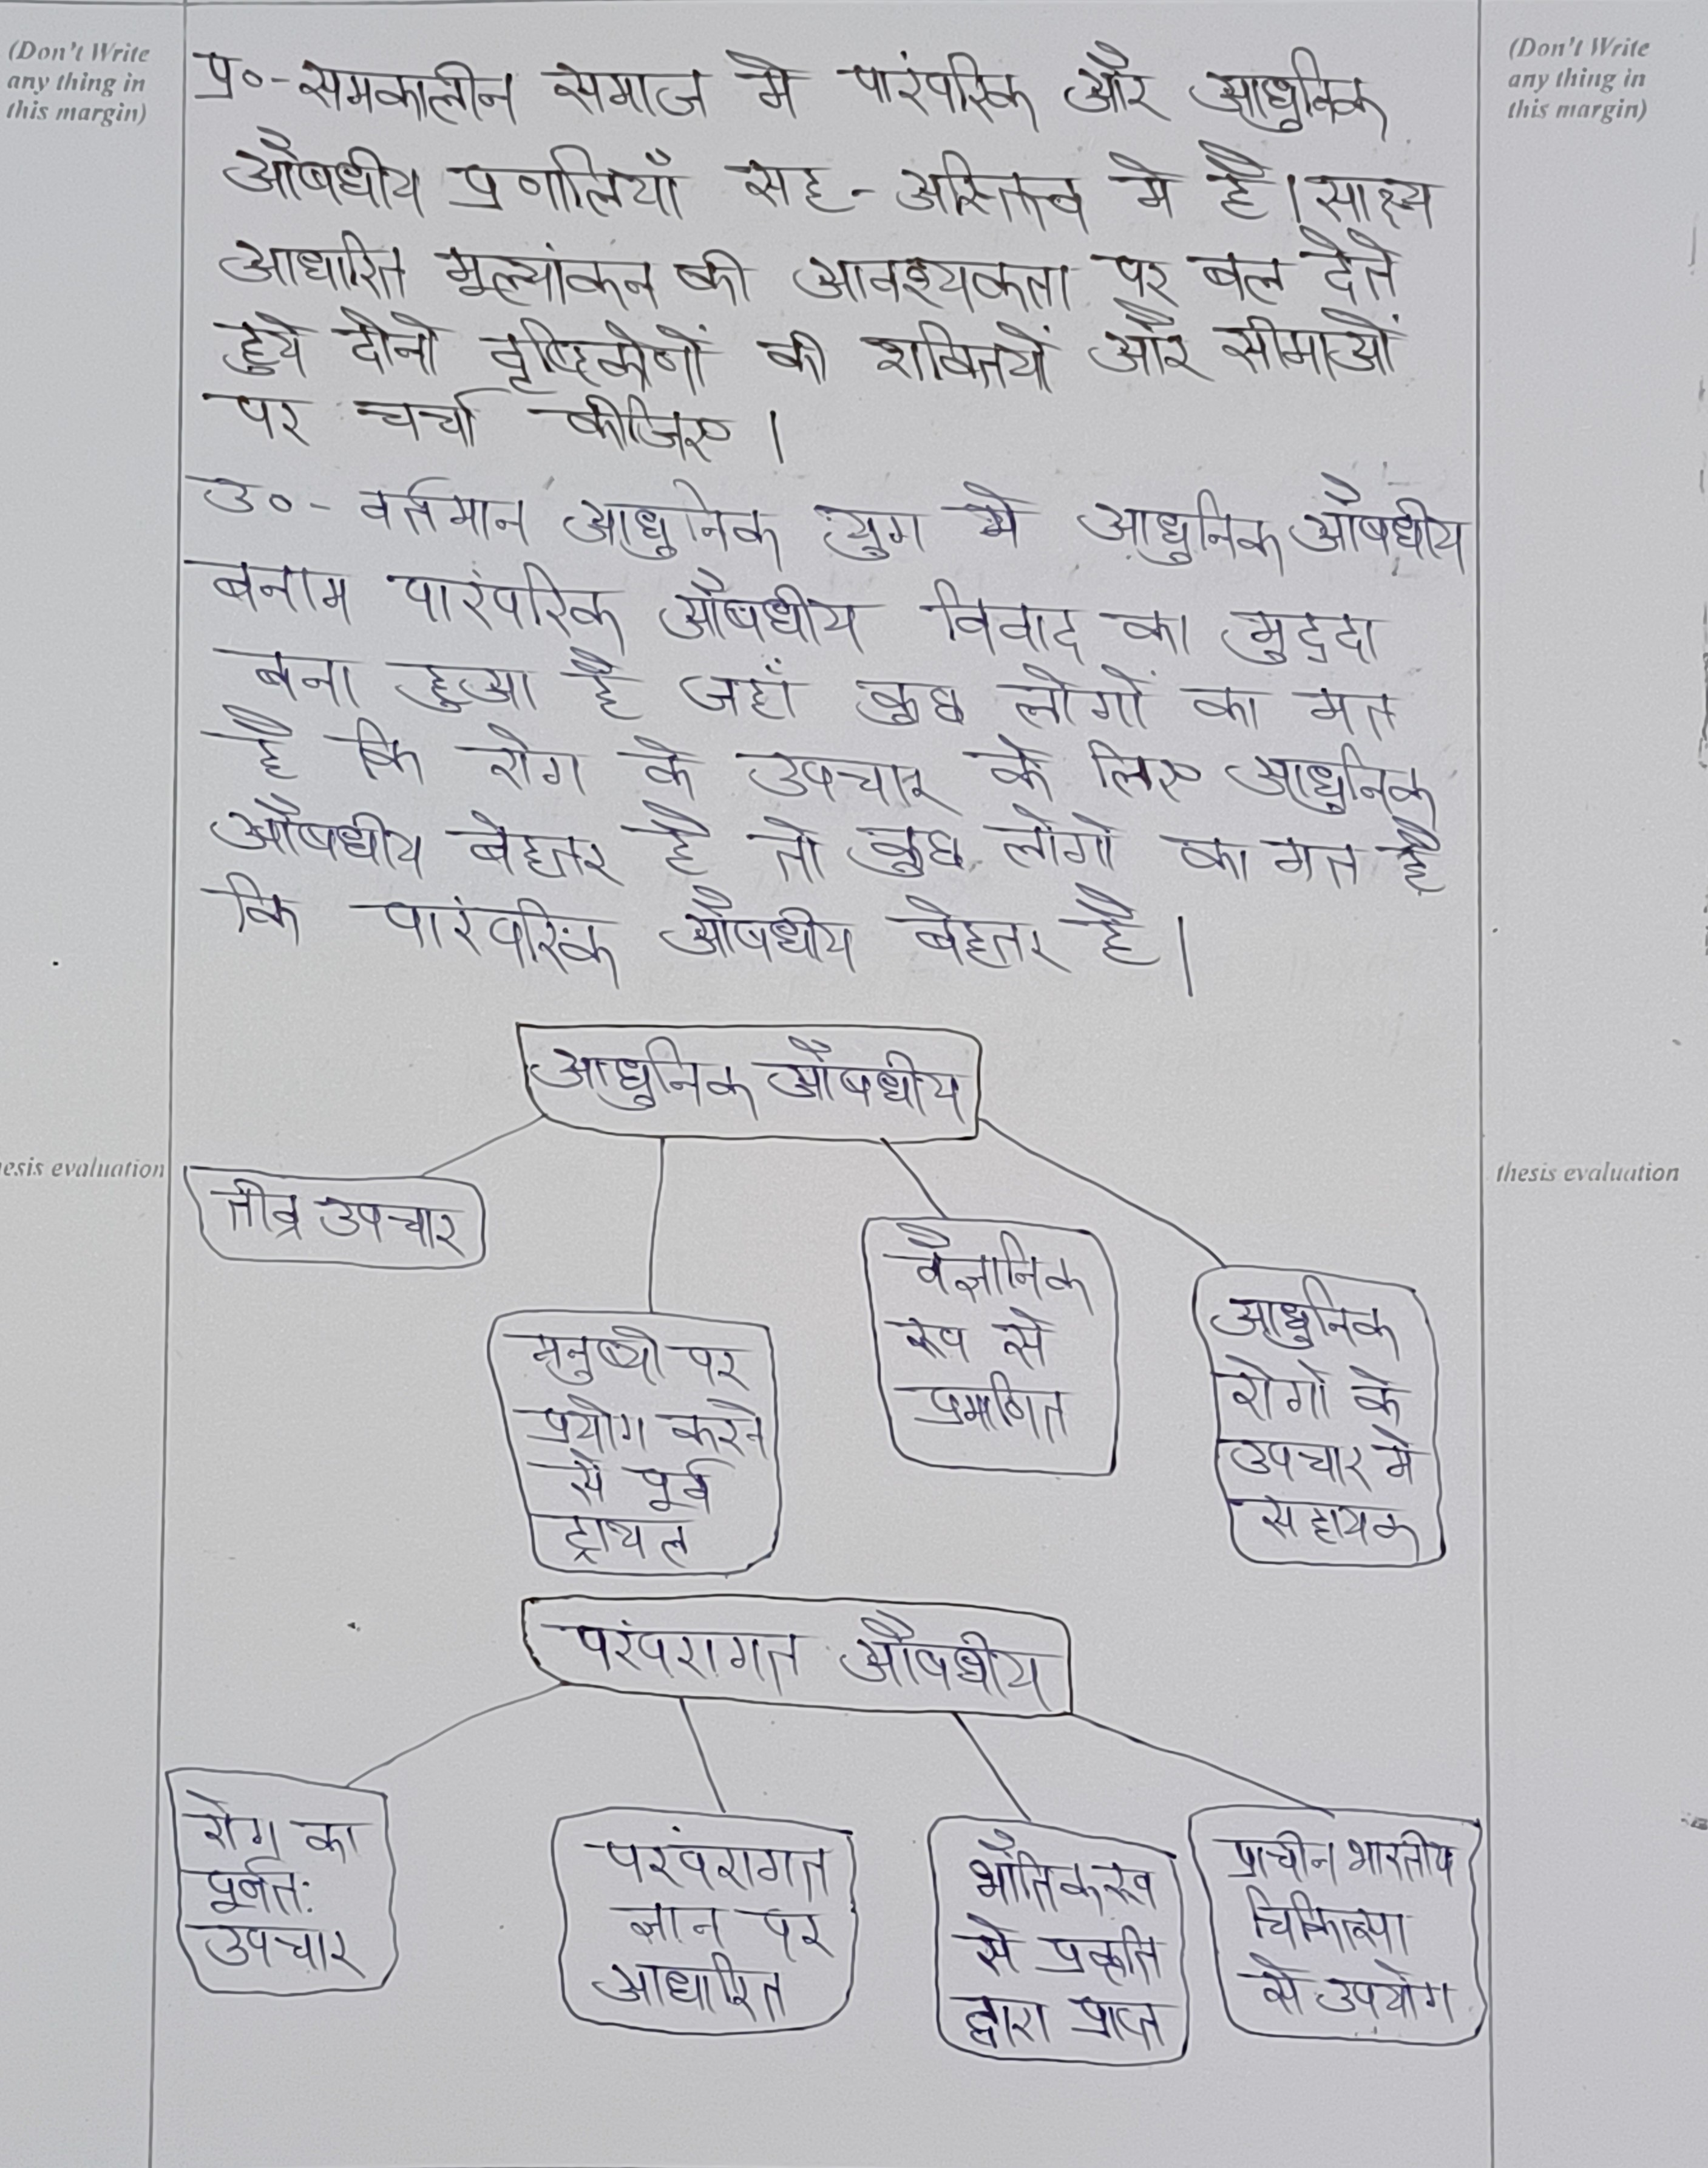 (Don't Write
any thing in
this margin)
(Don't Write
any thing in
this margin)
प्र०-समकालीन समाज मे पारंपरिक और आधुनिक
औषधीय प्रणालियाँ सह-अस्तित्व मे है। साक्ष्य
आधारित मूल्यांकन की आवश्यकता पर बल देते
हुये दोनो दृष्टिकोणों की शक्तियों और सीमाओं
पर चर्चा कीजिए।
उ०- वर्तमान आधुनिक युग मे आधुनिक औषधीय
बनाम पारंपरिक औषधीय विवाद का मुद्दा
बना हुआ है जहाँ कुछ लोगों का मत
है कि रोग के उपचार के लिए आधुनिक
औषधीय बेहतर है तो कुछ लोगो का मत है
कि पारंपरिक औषधीय बेहतर है।
आधुनिक औषधीय
esis evaluation
thesis evaluation
तीव्र उपचार
मनुष्यो पर
प्रयोग करने
से पूर्व
ट्रायल
वैज्ञानिक
रूप से
प्रमाणित
आधुनिक
रोगो के
उपचार मे
सहायक
परंपरागत औषधीय
रोग का
पूर्णतः
उपचार
परंपरागत
ज्ञान पर
आधारित
भौतिक रूप
से प्रकृति
द्वारा प्राप्त
प्राचीन भारतीय
चिकित्सा
से उपयोग